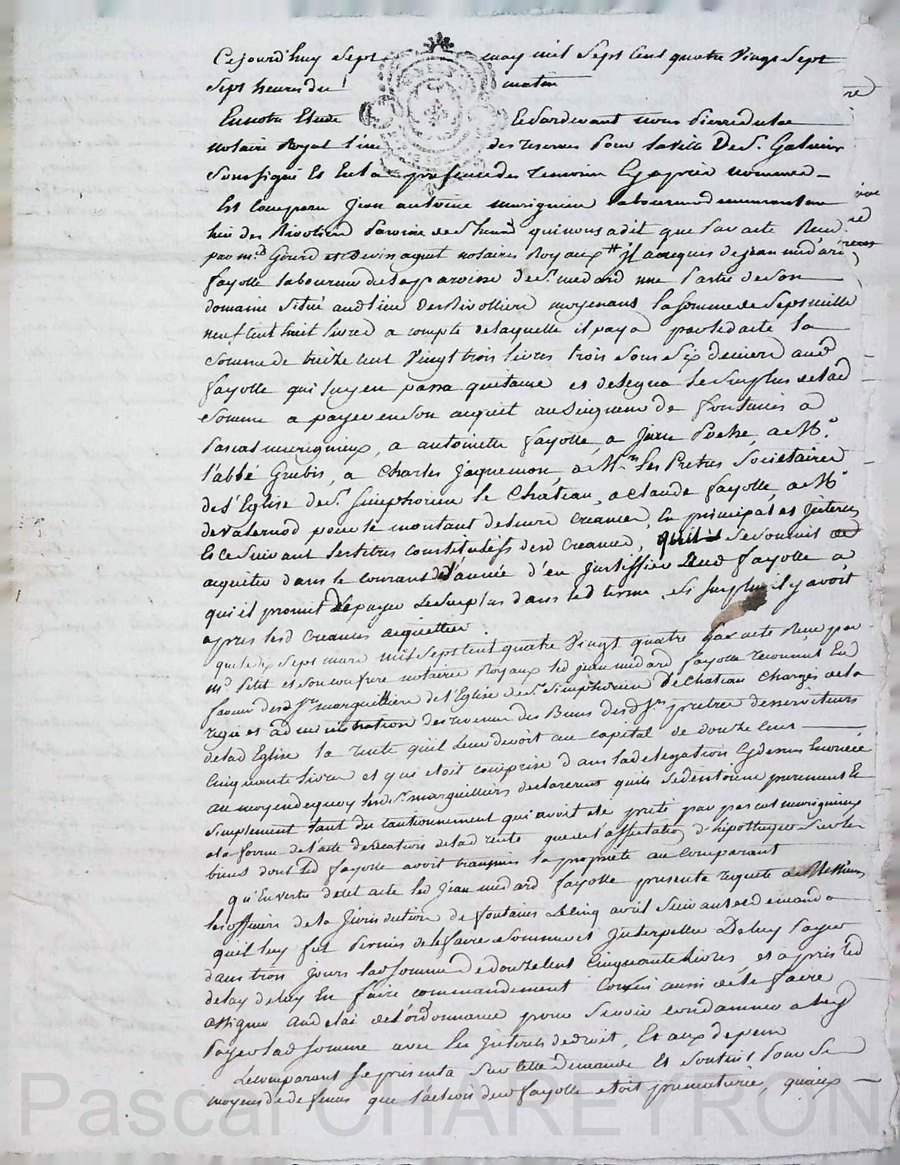 Cejourd'huy sept may mil sept cent quatre vingt sept
sept heures du matin
En notre Etude et Pardevant nous Pierre
notaire Royal l'un des reservés Pour la ville De St. Galmier
soussigné Et En la presence des Temoins Cy après nommés
Est Comparu Jean antoine murigneux laboureur demeurant au
lieu des Rivollier Paroisse de St. qui nous a dit que Par acte Recu
par md. Girard et Devin aguet notaires Royaux il a acquis de jean médard
fayolle laboureur de la paroisse de St. medard une Partie de son
domaine situé audit lieu des Rivollier moyenant la somme de sept mille
neuf cent huit livres a compte de laquelle il paya par led acte la
somme de treize cent vingt trois livres trois sous six deniers aud
fayolle qui luy en passa quitance et delegua le surplus de lad
somme a payer en son acquit au seigneur de fontanès a
Pascal murigneux, a antoinette fayolle, a Jean Poche, a Mr.
l'abbé Grubis, a Charles Jaquemon a Mrs. Les Pretres Societaires
de l'Eglise de St. Simphorien le Château, a Claude fayolle, a Mr
devalernod pour le montant de leurs creances, En principal et Interets
Et ce suivant les titres constitutifs desd creances, qu'il se soumit
aquiter dans le courant d l'année d'en justiffier aud fayolle a
qui il promit de payer le surplus dans led terme, si surplus il y avoit
après lesd creances aquittées
que le dix sept mars mil sept cent quatre vingt quatre par acte Recu par
md. Petit et son confrere notaires Royaux led jean médard fayolle reconnut En
faveur desd srs. marguilliers de l'Eglise de St. Simphorien Le Chateau chargés de la
regie et administration des revenus des Biens desd srs pretres desserviteurs
de lad Eglise la rente qu'il leur devoit au capital de douze cent
cinquante livres et qui étoit comprise dans la delegation cy dessus enoncée
au moyen de quoy lesd srs. marguilliers declarerent qu'ils se départoient purement Et
simplement tant du cautionnement qui avoit été prété par pascal murigneux
a la forme de l'acte de creation de lad rente que de l'affectation d'hipotheque sur les
biens dont led fayolle avoit transmis la propriété au comparant
qu'En vertu de cet acte led jean médard fayolle presenta requete a Messieurs
les officiers de la Jurisdiction de fontanès le cinq avril suivant et demanda
qu'il luy fut Permis de le faire sommer et Interpeller De luy payer
dans trois jours lad somme de douze cent cinquante livres, et après led
delay de luy En faire commandement comm' aussi de le faire
assigner au delai de l'ordonnance pour se voir condamner a luy
Payer lad somme avec les interets de droit, Et aux depens
Le comparant se presenta sur cette demande Et soutint Pour ses
moyens de defenses que l'action dud fayolle etoit prematurée, qu'aux